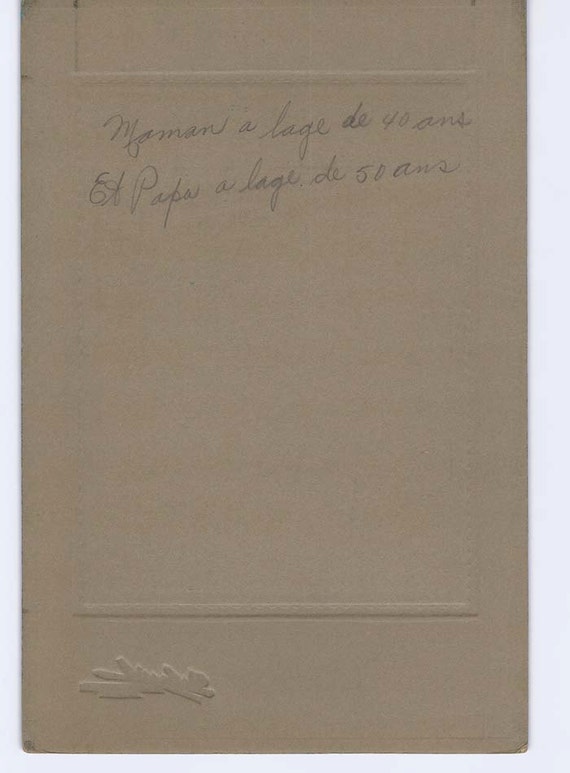 Maman a lage de 40 ans
Et Papa a lage de 50 ans